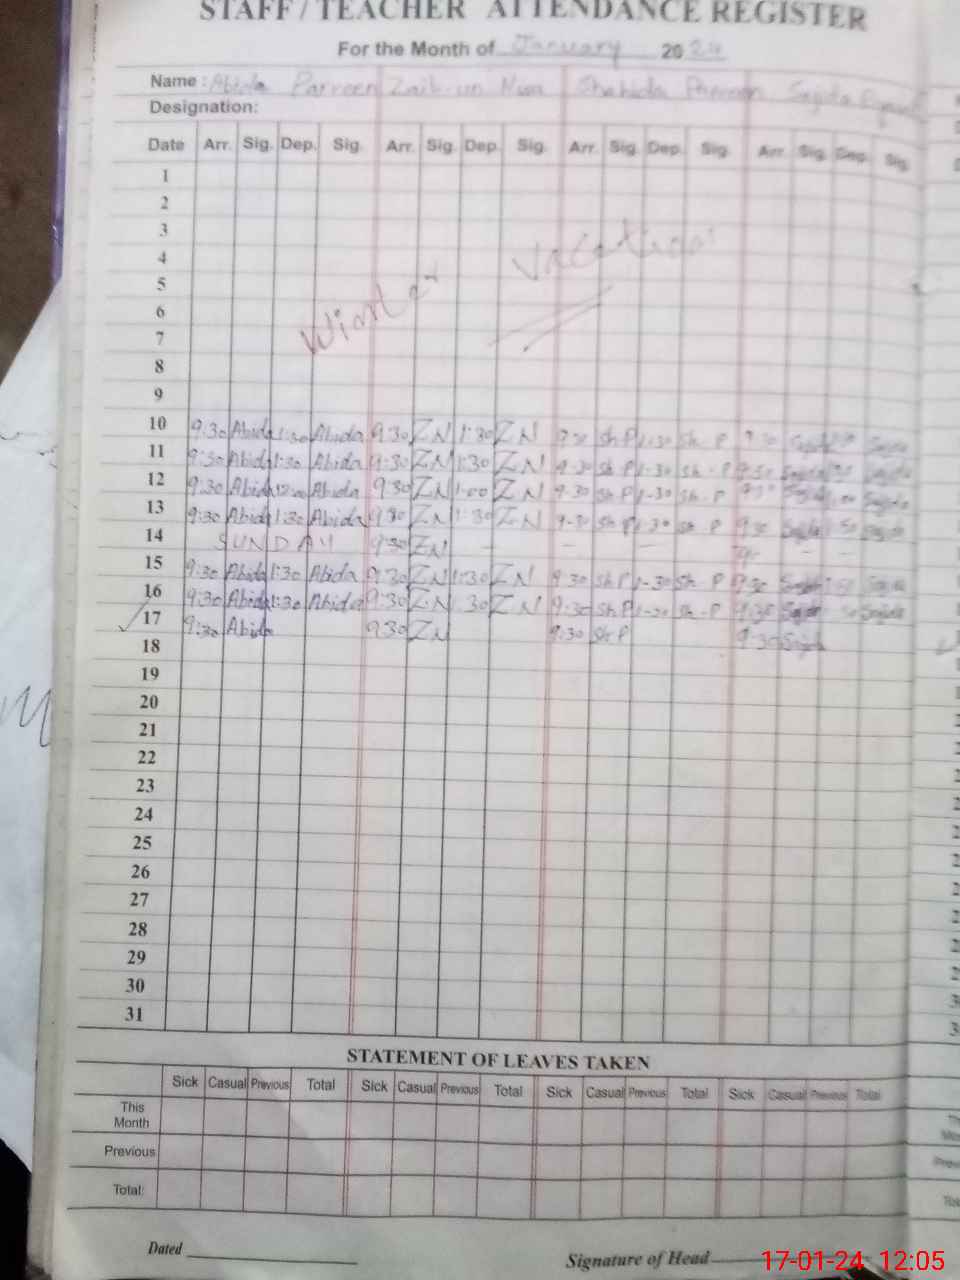 STAFF / TEACHER ATTENDANCE REGISTER
For the Month of January 2024
Name : Abida Parveen Zaib-un Nisa Shahida Parveen Sajida
Designation:
Date Arr. Sig. Dep. Sig. Arr. Sig. Dep. Sig. Arr. Sig. Dep. Sig. Arr. Sig. Dep. Sig.
1
2
3
4
5
6
7
8
9
Winter Vacation
10 9:30 Abida 1:30 Abida 9:30 ZN 1:30 ZN 9:30 Sh P 1:30 Sh. P 9:30 Sajida Sajida
11 9:30 Abida 1:30 Abida 9:30 ZN 1:30 ZN 9-30 Sh P 1-30 Sh. P 9:30 Sajida Sajida
12 9:30 Abida 12:00 Abida 9:30 ZN 1:00 ZN 9-30 Sh P 1-30 Sh. P Sajida Sajida
13 9:30 Abida 1:30 Abida 9:30 ZN 1:30 ZN 9-30 Sh P 1-30 Sh. P 9:30 Sajida Sajida
14 SUNDAY 9:30 ZN — — — — —
15 9:30 Abida 1:30 Abida 9:30 ZN 1:30 ZN 9:30 Sh P 1-30 Sh. P 9:30 Sajida Sajida
16 9:30 Abida 1:30 Abida 9:30 ZN 1:30 ZN 9:30 Sh P 1-30 Sh. P 9:30 Sajida Sajida
17 9:30 Abida 9:30 ZN 9:30 Sh P 9:30 Sajida
18
19
20
21
22
23
24
25
26
27
28
29
30
31
STATEMENT OF LEAVES TAKEN
Sick Casual Previous Total Sick Casual Previous Total Sick Casual Previous Total Sick Casual Previous Total
This
Month
Previous
Total:
Dated
Signature of Head
17-01-24 12:05